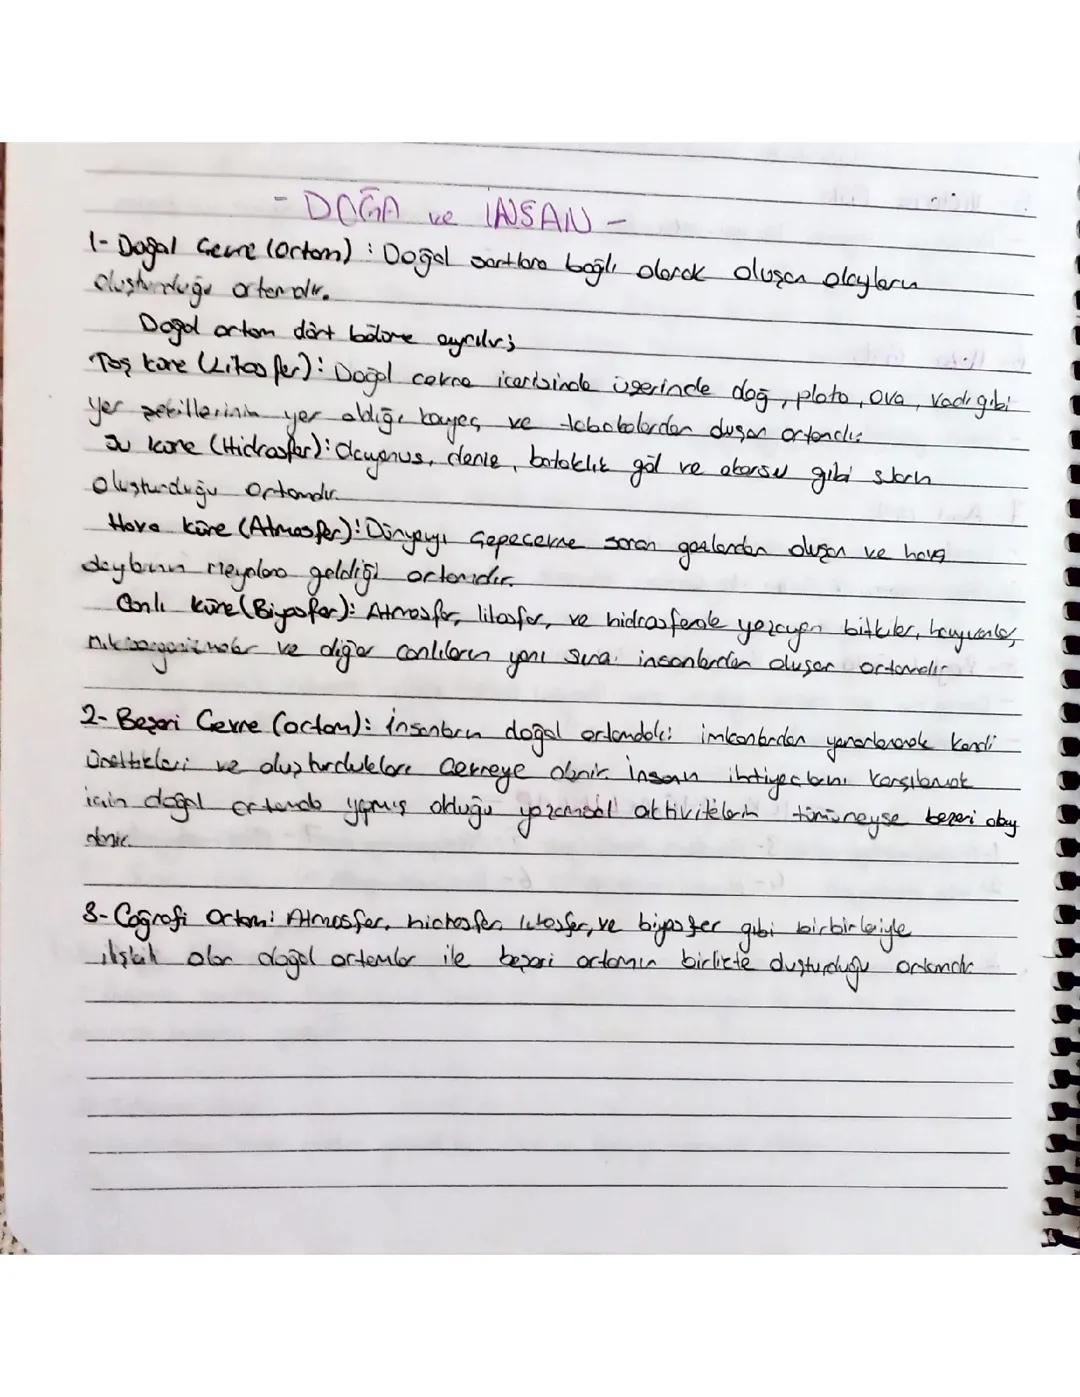 - DOĞA ve İNSAN -
1- Doğal Çevre (Ortam) : Doğal şartlara bağlı olarak oluşan olayların
oluşturduğu ortamdır.
Doğal ortam dört bölüme ayrılır;
Taş küre (Litosfer): Doğal çevre içerisinde üzerinde dağ, plato, ova, vadi gibi
yer şekillerinin yer aldığı kayaç ve tabakalardan oluşan ortamdır.
Su küre (Hidrosfer): Okyanus, deniz, bataklık göl ve akarsu gibi suların
oluşturduğu ortamdır.
Hava küre (Atmosfer): Dünyayı çepeçevre saran gazlardan oluşan ve hava
olaylarının meydana geldiği ortamıdır.
Canlı küre (Biyosfer): Atmosfer, litosfer, ve hidrosferde yaşayan bitkiler, hayvanlar,
mikroorganizmalar ve diğer canlıların yanı sıra insanlardan oluşan ortamdır
2- Beşeri Çevre (ortam): İnsanların doğal ortamdaki imkanlardan yararlanarak kendi
ürettikleri ve oluşturdukları çevreye denir. İnsanın ihtiyaçlarını karşılamak
için doğal ortamda yapmış olduğu yaşamsal aktivitelerin tümüneyse beşeri olay
denir.
3- Coğrafi Ortam: Atmosfer, hidrosfer, litosfer, ve biyosfer gibi birbirleriyle
ilişkili olan doğal ortamlar ile beşeri ortamın birlikte oluşturduğu ortamdır